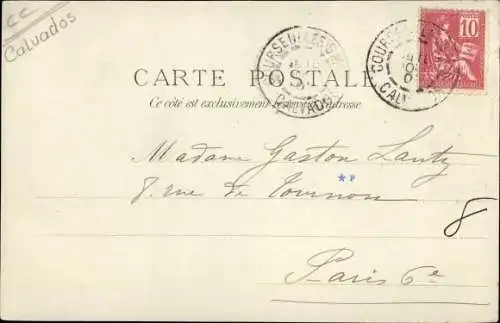 CC
Calvados
COURSEULLES S. MER
CALVADOS
COURSEULLES
CALV
10
CARTE POSTALE
Ce côté est exclusivement réservé à l'adresse
Madame Gaston Lantz
8. rue de Tournon
*P
8
Paris 6e